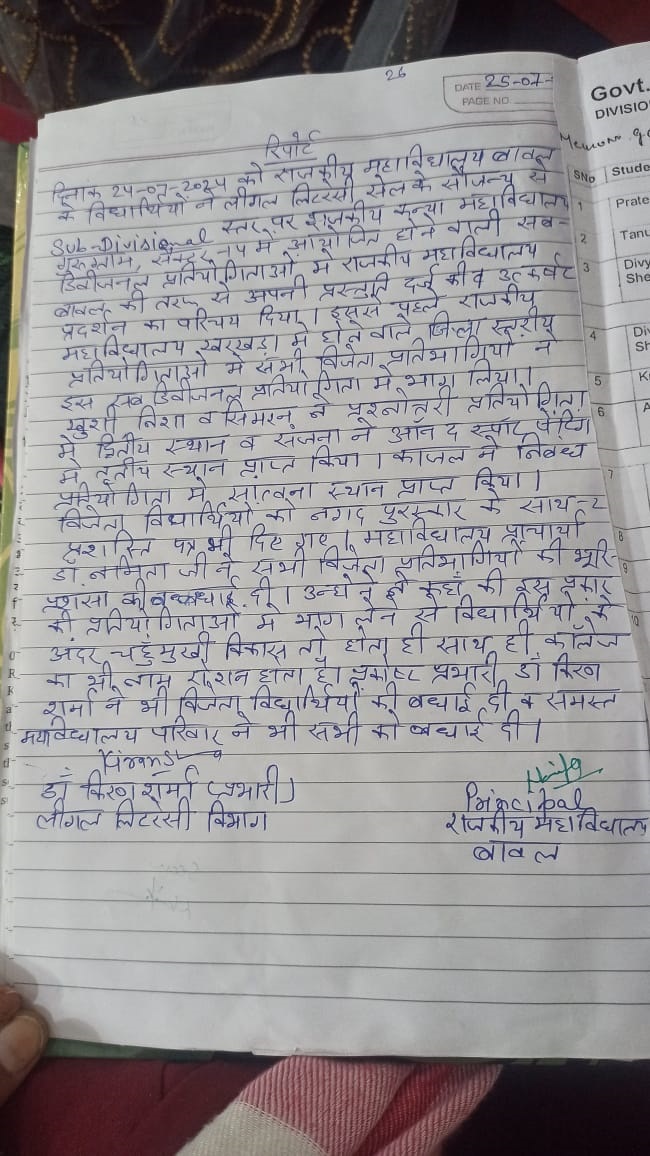 26
DATE 25-07-
PAGE NO.
रिपोर्ट
दिनांक 24-07-2024 को राजकीय महाविद्यालय बावल
के विद्यार्थियों ने लीगल लिटरसी सेल के सौजन्य से
Sub-Divisional स्तर पर राजकीय कन्या महाविद्यालय
गुरुग्राम, सेक्टर में आयोजित होने वाली सब-
डिवीजनल प्रतियोगिताओं में राजकीय महाविद्यालय
बावल की तरफ से अपनी प्रस्तुति दर्ज की व उत्कर्षट
प्रदर्शन का परिचय दिया। इससे पहले राजकीय
महाविद्यालय खरखड़ा में होने वाले जिला स्तरीय
प्रतियोगिताओं में सभी विजेता प्रतिभागियों ने
इस सब डिवीजनल प्रतियोगिता में भाग लिया।
खुशी निशा व सिमरन ने प्रश्नोत्तरी प्रतियोगिता
में द्वितीय स्थान व संजना ने ऑन द स्पॉट पेंटिंग
में तृतीय स्थान प्राप्त किया। काजल ने निबंध
प्रतियोगिता में सांत्वना स्थान प्राप्त किया।
विजेता विद्यार्थियों को नगद पुरस्कार के साथ-2
प्रशस्ति पत्र भी दिए गए। महाविद्यालय प्राचार्या
डॉ. नमिता जी ने सभी विजेता प्रतिभागियों की भूरि-
प्रशंसा की व बधाई दी। उन्होंने कहाँ की इस प्रकार
की प्रतियोगिताओं में भाग लेने से विद्यार्थियों के
अंदर चहुँमुखी विकास तो होता ही साथ ही कॉलेज
का भी नाम रोशन होता है। प्रकोष्ट प्रभारी डॉ किरण
शर्मा ने भी विजेता विद्यार्थियों को बधाई दी व समस्त
महाविद्यालय परिवार ने भी सभी को बधाई दी।
डॉ किरण शर्मा (प्रभारी)
लीगल लिटरेसी विभाग
Principal
राजकीय महाविद्यालय
बावल
Govt.
DIVISIO
SNo Stude
1 Prate
2 Tanu
3 Divy
She
4 Div
Sh
5 K
6 A
7
8
9
10